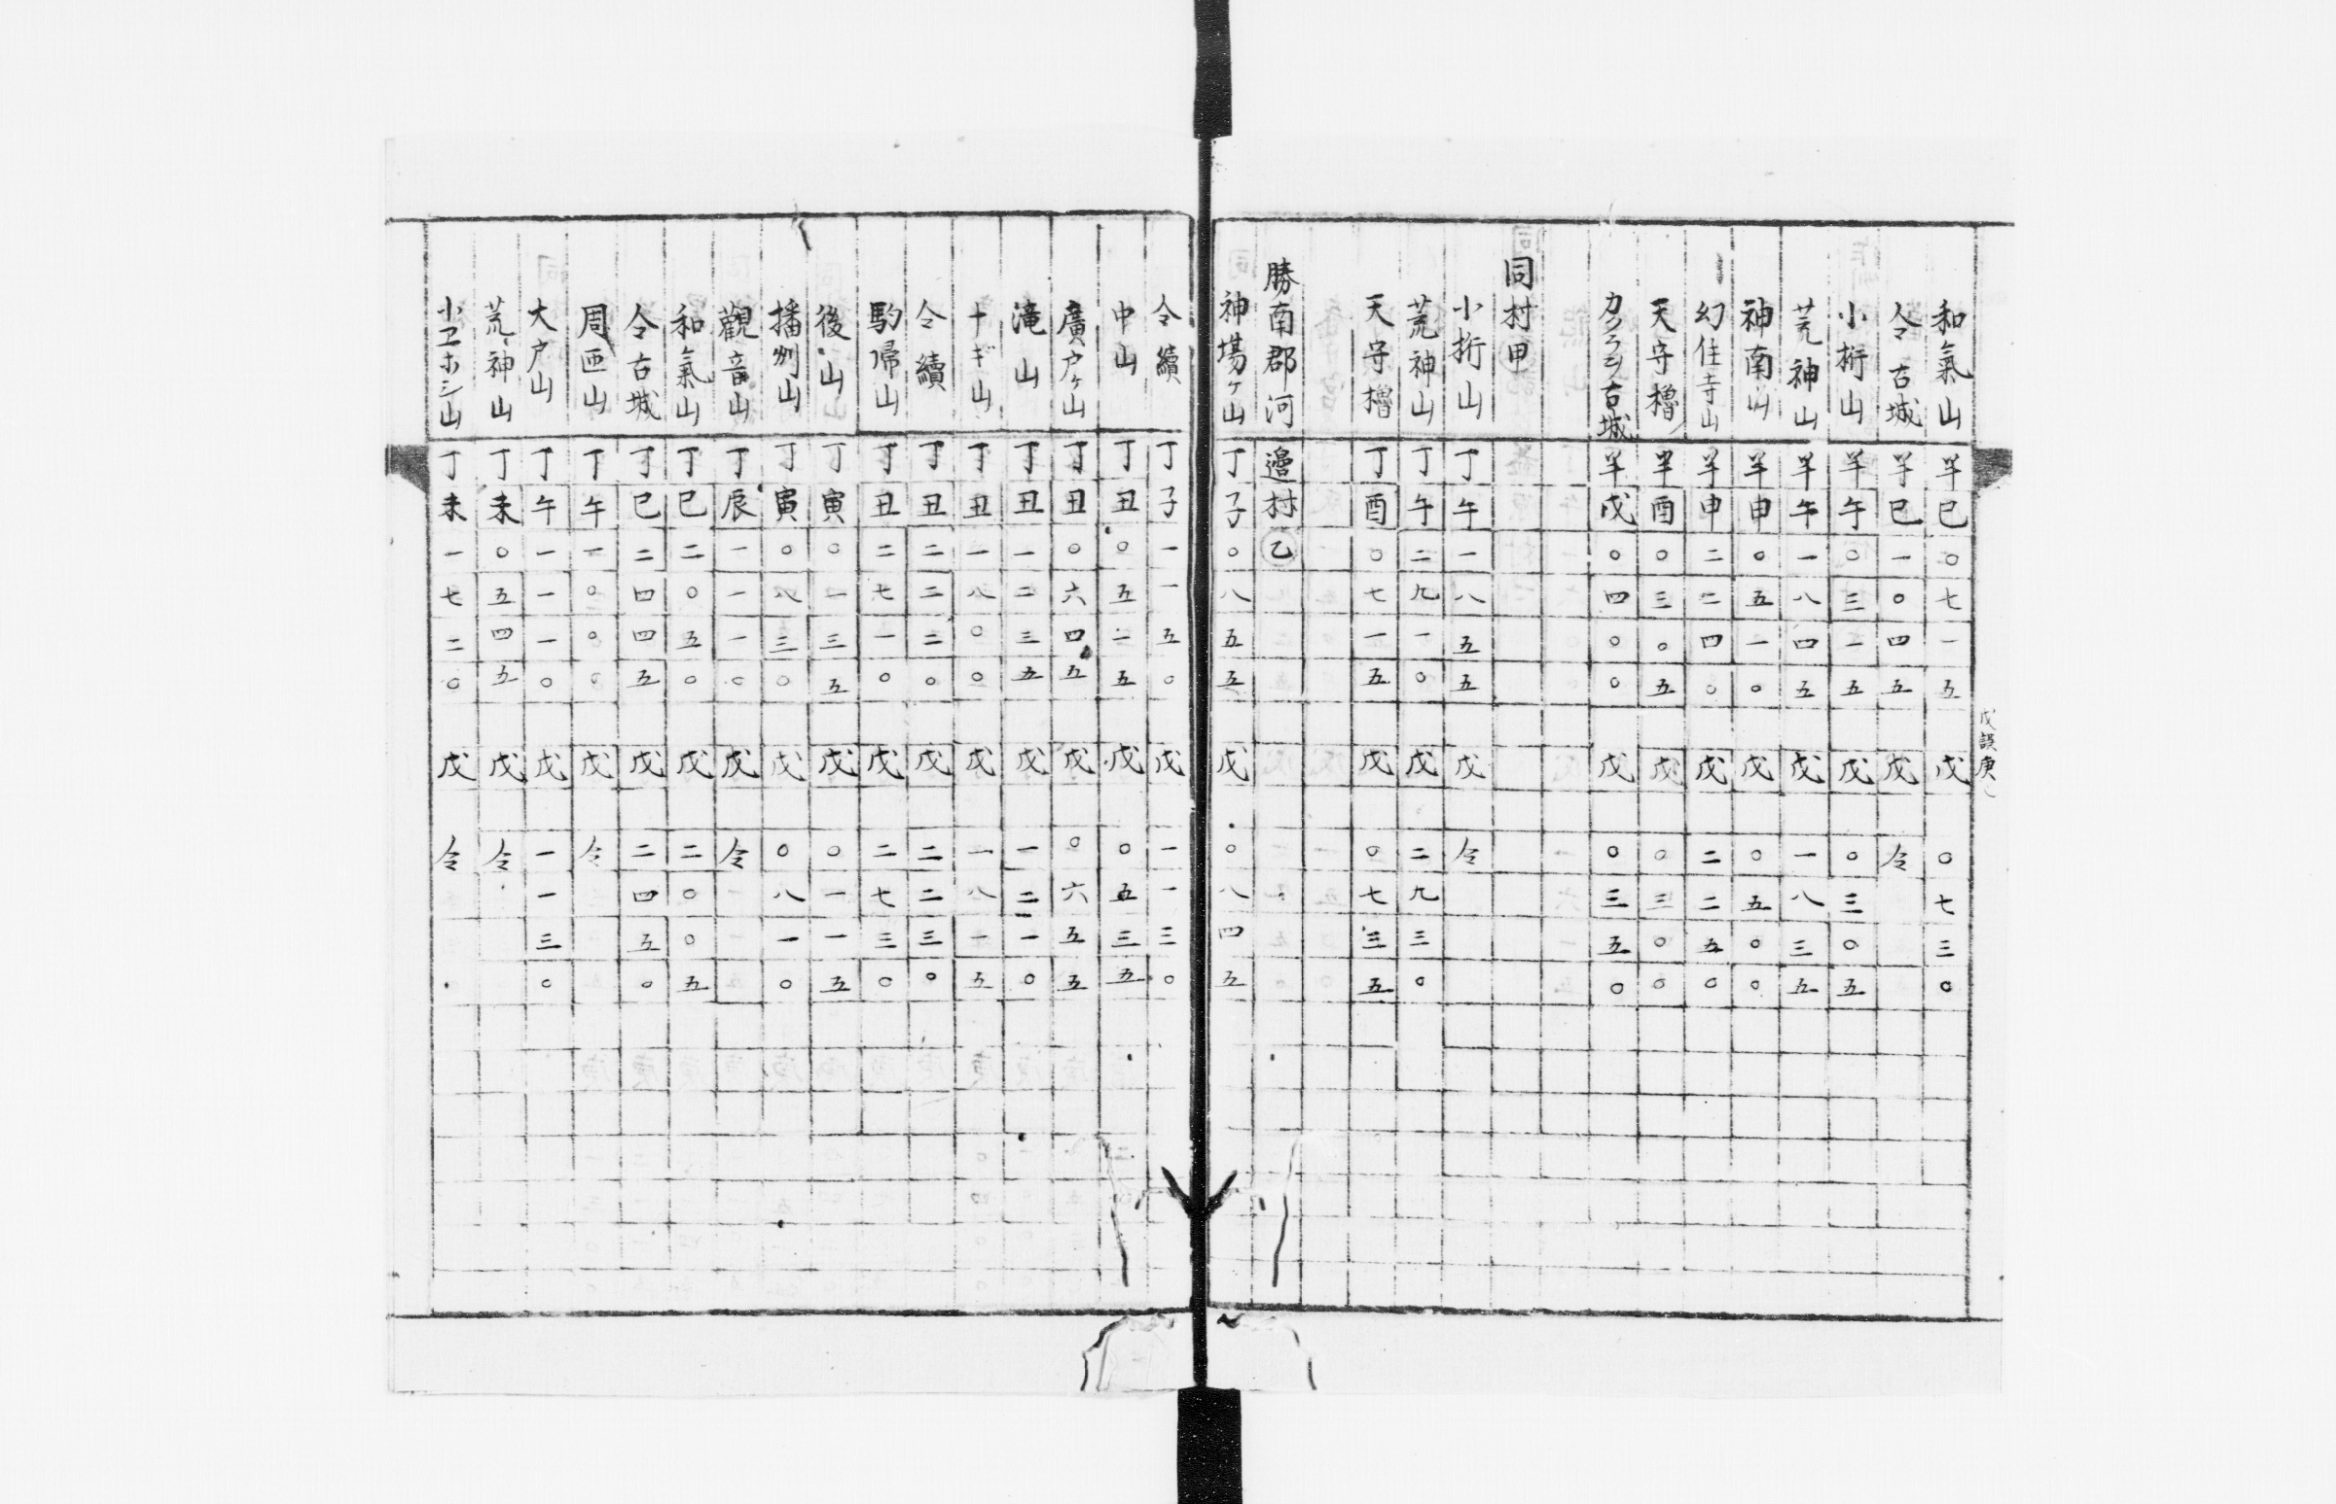 戊誤庚
和氣山 半巳〇七一五 戊 〇七三〇
仝古城 半巳一〇四五 戊 仝
小桁山 半午〇三一五 戊 〇三〇五
荒神山 半午一八四五 戊 一八三五
神南山 半申〇五一〇 戊 〇五〇〇
幻住寺山 半申二二四〇 戊 二二五〇
天守櫓 半酉〇三〇五 戊 〇三〇〇
カツラシ古城 半戌〇四〇〇 戊 〇三五〇
同村甲
小桁山 丁午一八五五 戊 仝
荒神山 丁午二九一〇 戊 二九三〇
天守櫓 丁酉〇七一五 戊 〇七三五
勝南郡河邉村乙
神場ケ山 丁子〇八五五 戊 〇八四五
仝續 丁子一一五〇 戊 一一三〇
中山 丁丑〇五二五 戊 〇五三五
廣戸ケ山 丁丑〇六四五 戊 〇六五五
滝山 丁丑一二三五 戊 一二一〇
ナギ山 丁丑一八〇〇 戊 一八一五
仝續 丁丑二二二〇 戊 二二三〇
駒帰山 丁丑二七一〇 戊 二七三〇
後山 丁寅〇一三五 戊 〇一一五
播州山 丁寅〇八三〇 戊 〇八一〇
觀音山 丁辰一一一〇 戊 仝
和氣山 丁巳二〇五〇 戊 二〇〇五
仝古城 丁巳二四四五 戊 二四五〇
周匝山 丁午一〇〇〇 戊 仝
大戸山 丁午一一一〇 戊 一一三〇
荒神山 丁未〇五四五 戊 仝
小ヱホシ山 丁未一七二〇 戊 仝